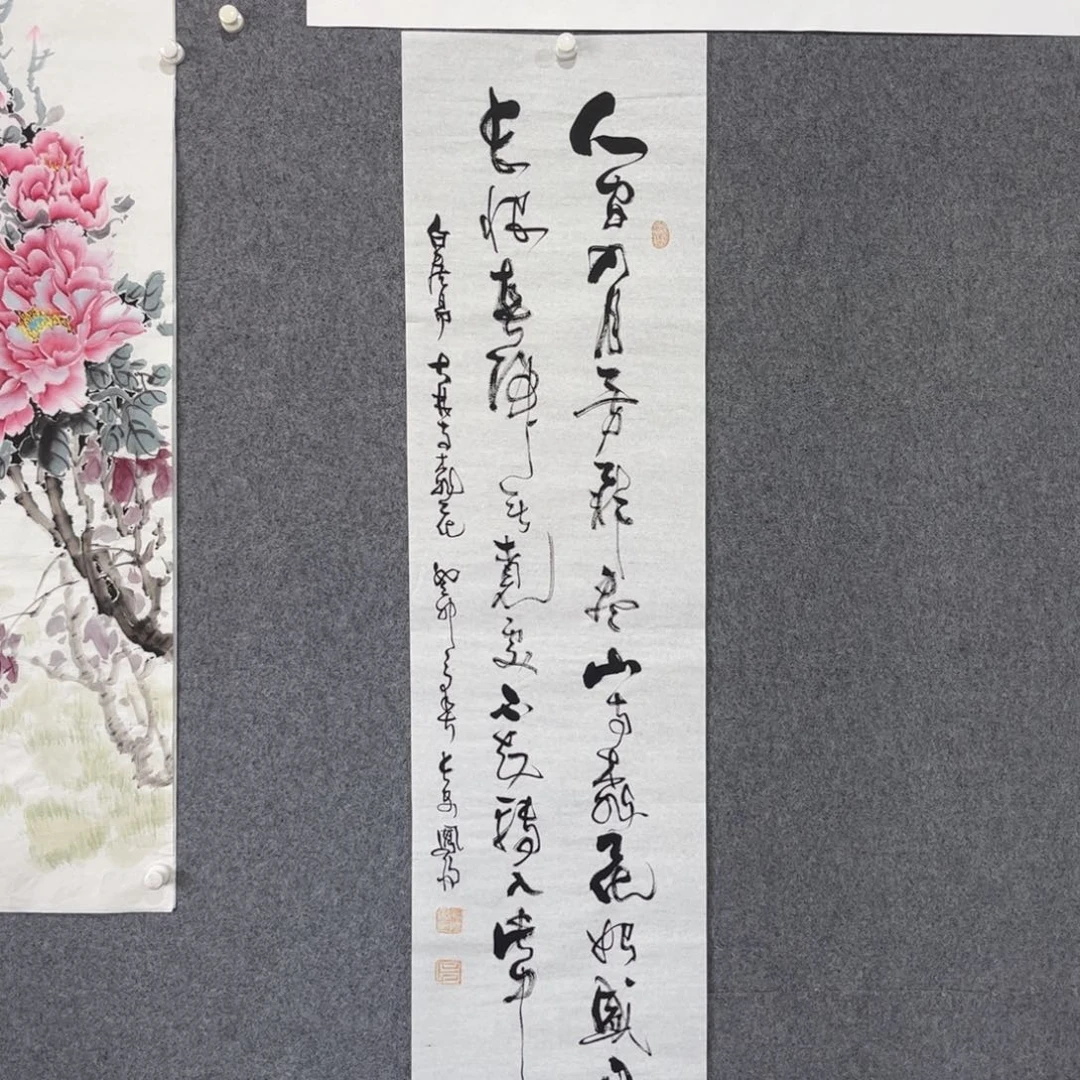 人間四月芳菲盡山寺桃花始盛
長恨春歸无覓處不知轉入此中
白居易大林寺桃花癸卯